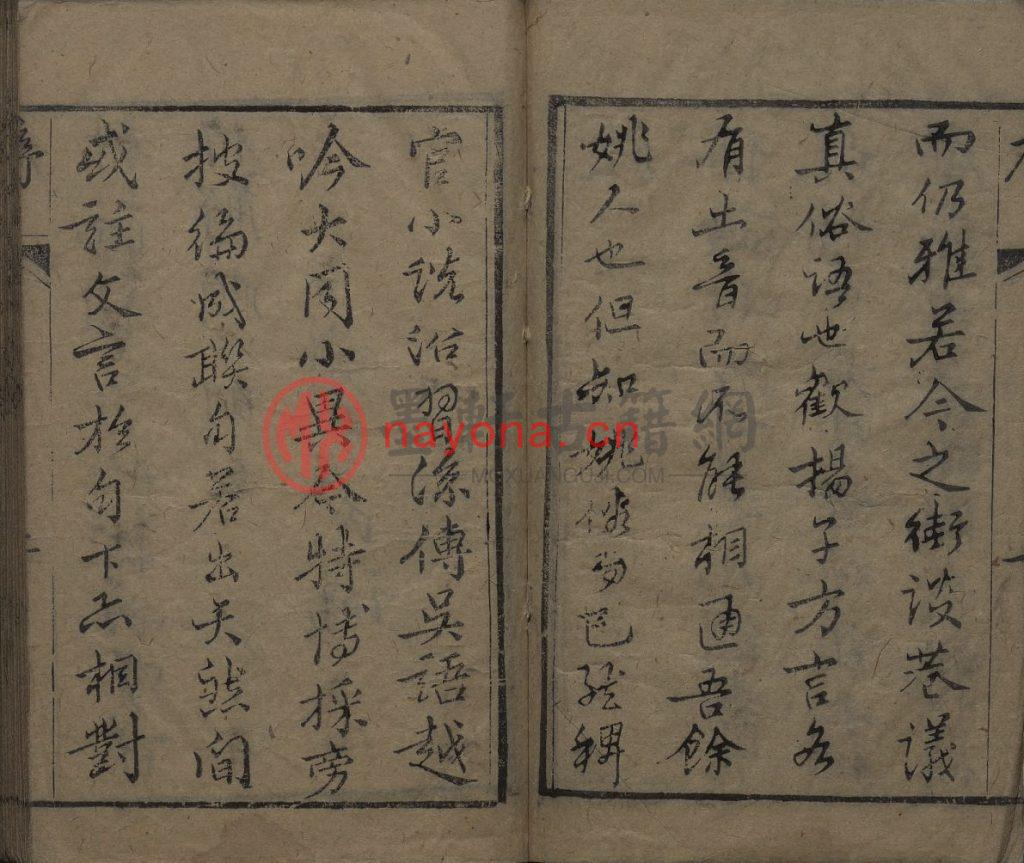 而仍雅若今之街談巷議
真俗語也歡揚子方言各
有土音而不能相通吾餘
姚人也但知姚俗 邑 稗
官小說沿習流傳吳語越
吟大同小異今特博採旁
搜編成聯句若出天然間
或註文言於句下亦相對
墨軒古籍網
MOXUANGUJI.COM
nayona.cn